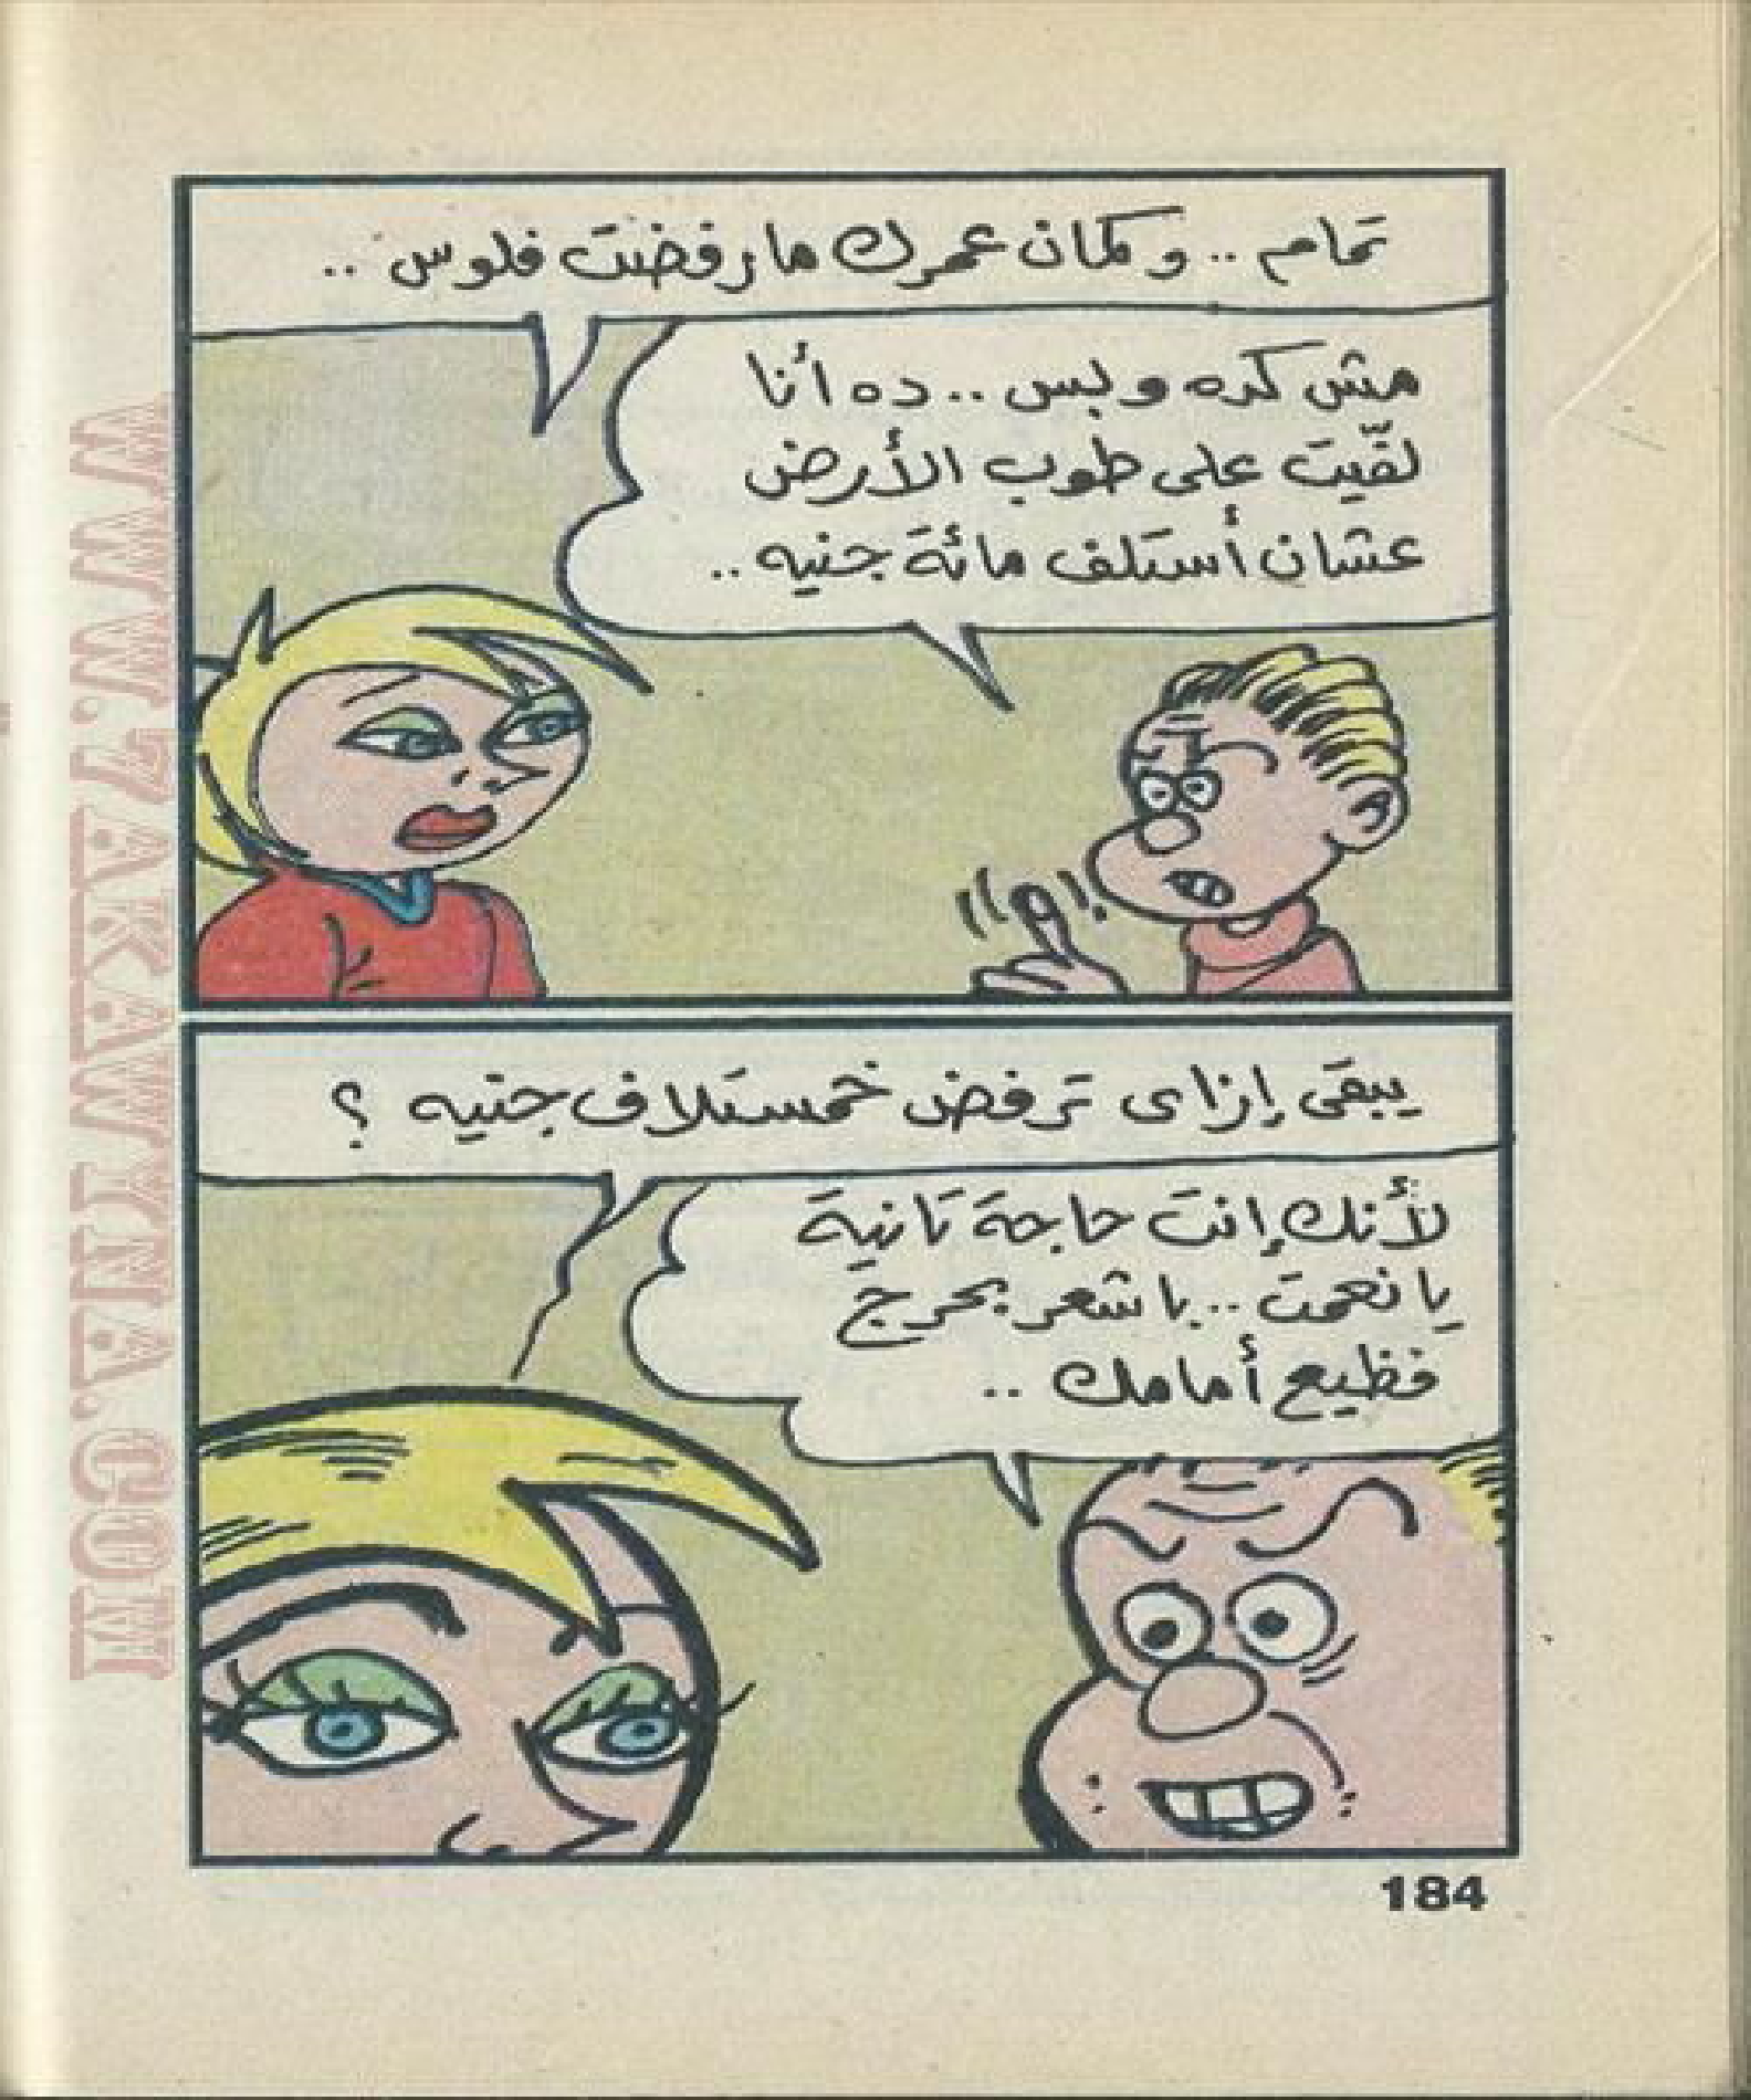 تمام .. وكمان عمرك ما رفضت فلوس ..
مش كده وبس .. ده أنا
لفّيت على طوب الأرض
عشان أستلف مائة جنيه ..
يبقى إزاى ترفض خمستلاف جنيه ؟
لأنك إنت حاجة تانية
يا نعمت .. باشعر بحرج
فظيع أمامك ..
184
WWW.ZAKAWINA.COM